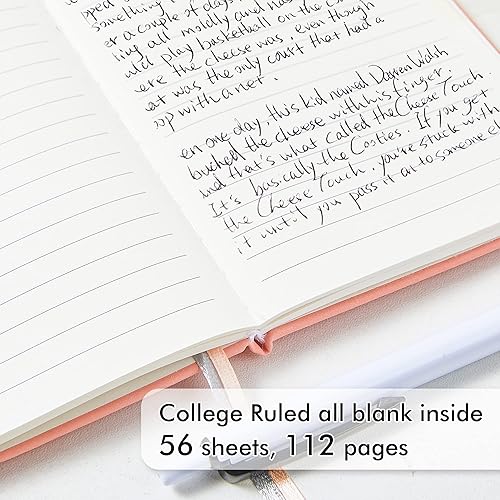 pped
something
er a couple of days
ling all moldly and nas
uld play basketball on the co
ere the cheese was, even though
at was the only court that had a
oop with a net.
en one day, this kid named Darren Walsh
touched the cheese with his finger,
und that's what called the Cheese Touch.
It's basically the Cooties. If you get
the Cheese Touch, you're stuck with
it until you pass it on to someone e
College Ruled all blank inside
56 sheets, 112 pages